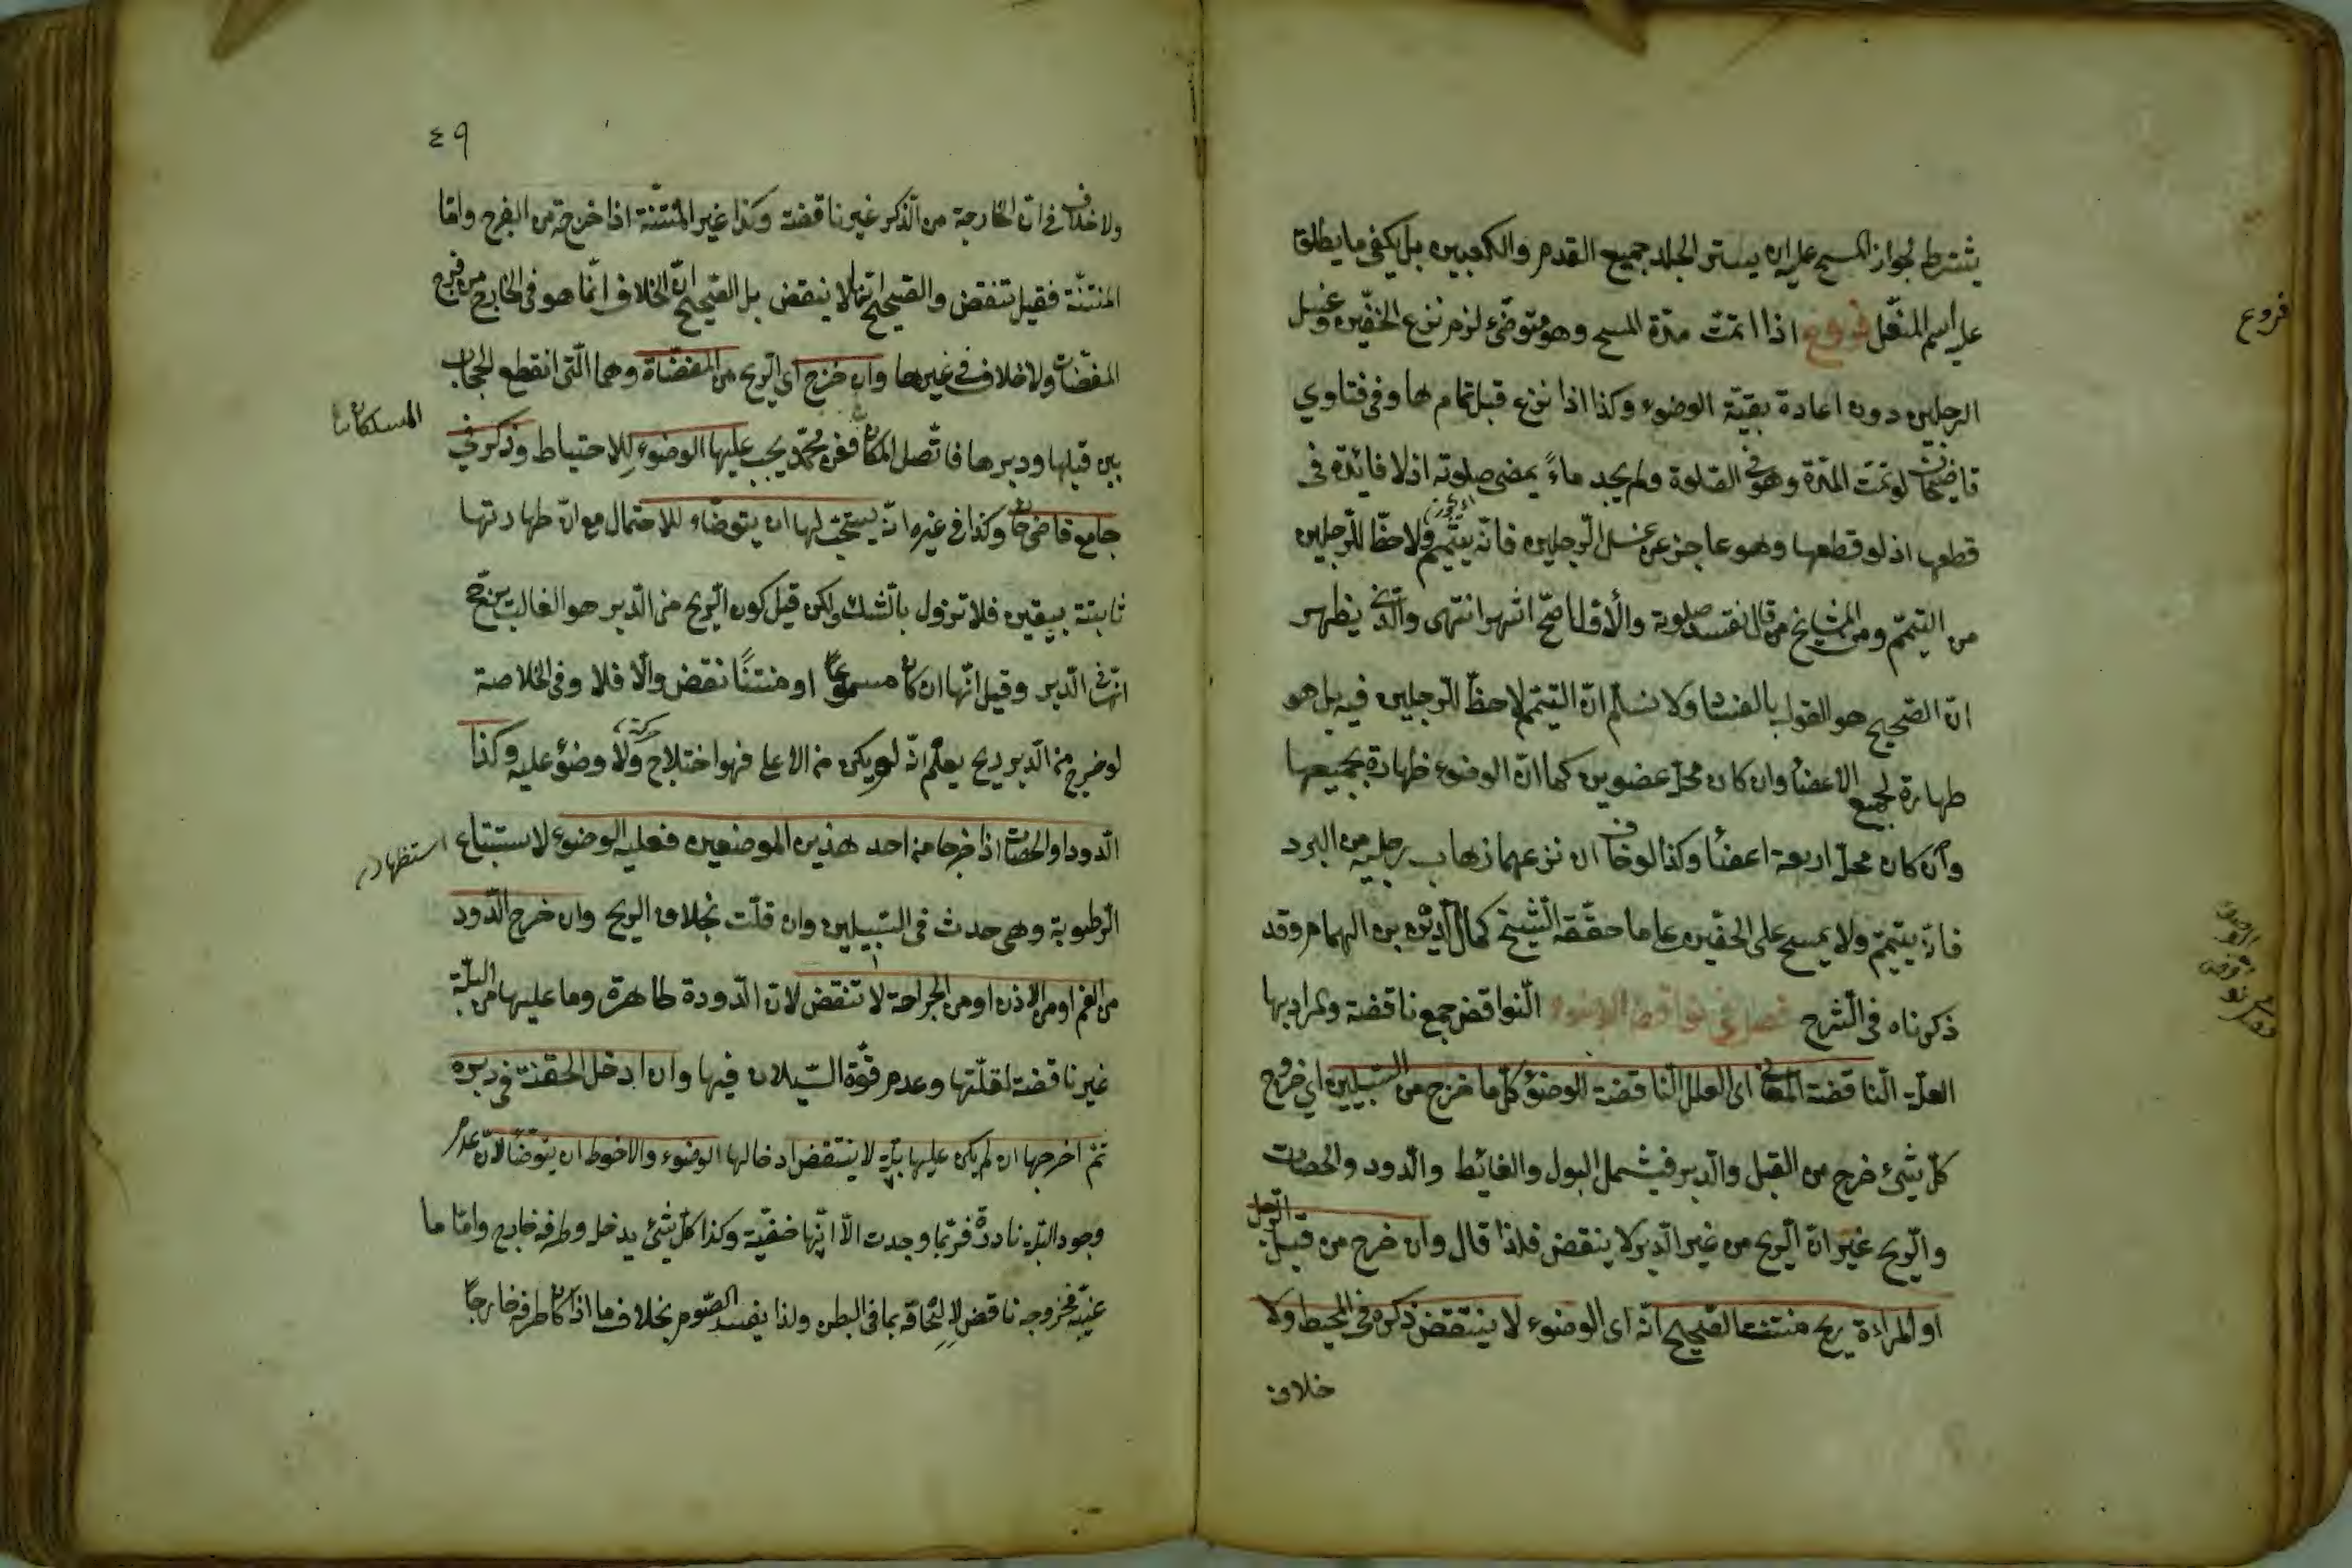 يشترط لجواز المسح عليه ان يستر الجلد جميع القدم والكعبين بل يكفى ما يطلق
عليه اسم المنعّل فروع اذا اتمّت مدّة المسح وهو متوضّئ لزم نزع الخفّين وغسل
الرجلين دون اعادة بقيّة الوضوء وكذا اذا نزع قبل تمامها وفى فتاوي
قاضيخان لو تمّت المدّة وهو فى الصّلوة ولم يجد ماءً يمضى صلوته اذ لا فائدة فى
قطعها اذ لو قطعها وهو عاجز عن غسل الرّجلين فانّه يتيمّم ولا حظّا للرّجلين
من التيمّم ومن المشايخ من قال تفسد صلوته والأوّل اصحّ اشهر انتهى والّذى يظهر
انّ الصّحيح هو القول بالفساد ولا نسلّم انّ التيمّم لا حظّ للرّجلين فيه بل هو
طهارة لجميع الاعضاء وان كان محلّه عضوين كما انّ الوضوء طهارة بجميعها
وان كان محلّه اربعة اعضاء وكذا لو خاف ان نزعهما ذهاب رجليه من البرد
فانّه يتيمّم ولا يمسح على الخفّين على ما حقّقه الشّيخ كمال الدّين بن الهمام وقد
ذكرناه فى الشّرح فصل فى نواقض الوضوء النّواقض جمع ناقضة والمراد بها
العلّة النّاقضة المعانى اى العلل النّاقضة الوضوء كلّ ما خرج من السّبيلين اي خروج
كلّ شئ خرج من القبل والدّبر فيشمل البول والغائط والدّود والحصاة
والرّيح غير انّ الرّيح من غير الدّبر لا ينقض فلذا قال وان خرج من قبل الرّجل
او المراءة ريح منتنة الصّحيح انّه اى الوضوء لا ينتقض ذكره فى المحيط ولا
خلاف
فروع
فصل فى نواقض الوضوء
٤٩
ولا خلاف فى انّ الخارجة من الذّكر غير ناقضة وكذا غير المنتنة اذا خرجت من الفرج وامّا
المنتنّة فقيل تنقض والصّحيح انّها لا ينقض بل الصّحيح انّ الخلاف انّما هو فى الخارج من فرج
المفضاة ولا خلاف فى غيرها وان خرج اى الرّيح من المفضاة وهما الّتى انقطع الحجاب
بين قبلها ودبرها فاتّصل المكان فعن محمّد يجب عليها الوضوء للاحتياط وذكر في
جامع قاضيخان وكذا فى غيره انّه يستحبّ لها ان يتوضّاء للاحتمال مع انّ طهارتها
ثابتة بيقين فلا تزول بالشّك ولكن قيل كون الرّيح من الدّبر هو الغالب يرجّح
انّه من الدّبر وقيل انّها ان كان مسموعًا او منتنًا نقض والّا فلا وفى الخلاصة
لو خرج من الدّبر ريح يعلم انّه لم يكن من الاعلى فهو اختلاج ولا وضوء عليه وكذا
الدّود او الحصاة اذا خرجا من احد هذين الموضعين فعليه الوضوء لاستتباع
الرّطوبة وهى حدث فى السّبيلين وان قلّت بخلاف الريح وان خرج الدّود
من الفم او من الاذن او من الجراحة لا تنقض لانّ الدّودة طاهرة وما عليها من البلّة
غير ناقضة لقلّتها وعدم قوّة السّيلان فيها وان ادخل الحقنة فى دبره
ثمّ اخرجها ان لم يكن عليها بلّة لا ينتقض ادخالها الوضوء والاحوط ان يتوضّأ لانّ عدم
وجود البلّة نادرة فربّما وجدت الّا انّها خفيّة وكذا كلّ شئ يدخل وطرفه خارج وامّا ما
غيّبه فخروجه ناقض لالتحاقه بما فى البطن ولذا يفسد الصّوم بخلاف ما اذا كان طرفه خارجًا
المسلكان